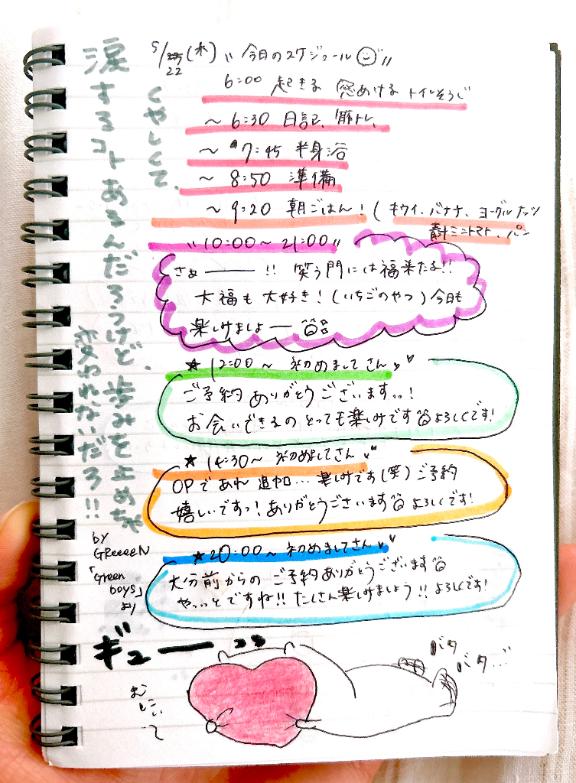 5/22(水) " 今日のスケジュール "
6:00 起きる 窓あける トイレそうじ
~ 6:30 日記、筋トレ、
~ 7:45 半身浴
~ 8:50 準備
~ 9:20 朝ごはん!(キウイ、バナナ、ヨーグルト、ナッツ
ミニトマト、パン
"10:00~21:00"
さぁー!! 笑う門には福来たる!!
大福も大好き!(いちごのやつ)今日も
楽しみましょー
★12:00~ 初めましてさん
ご予約ありがとうございます..!
お会いできるの とっても楽しみです よろしくです!
★14:30~ 初めましてさん
OPであれ追加... 楽しみです(笑)ご予約
嬉しいですっ!ありがとうございます よろしくです!
★20:00~初めましてさん
大分前からの ご予約ありがとうございます
やっっとですね!! たくさん楽しみましょう!! よろしくです!
くやしくて、
涙するコトあるんだろうけど、歩みを止めちゃ
変われないだろ!!
by
GReeeeN
「Green
boys」
より
ギューーッッ
バタ
バタ...